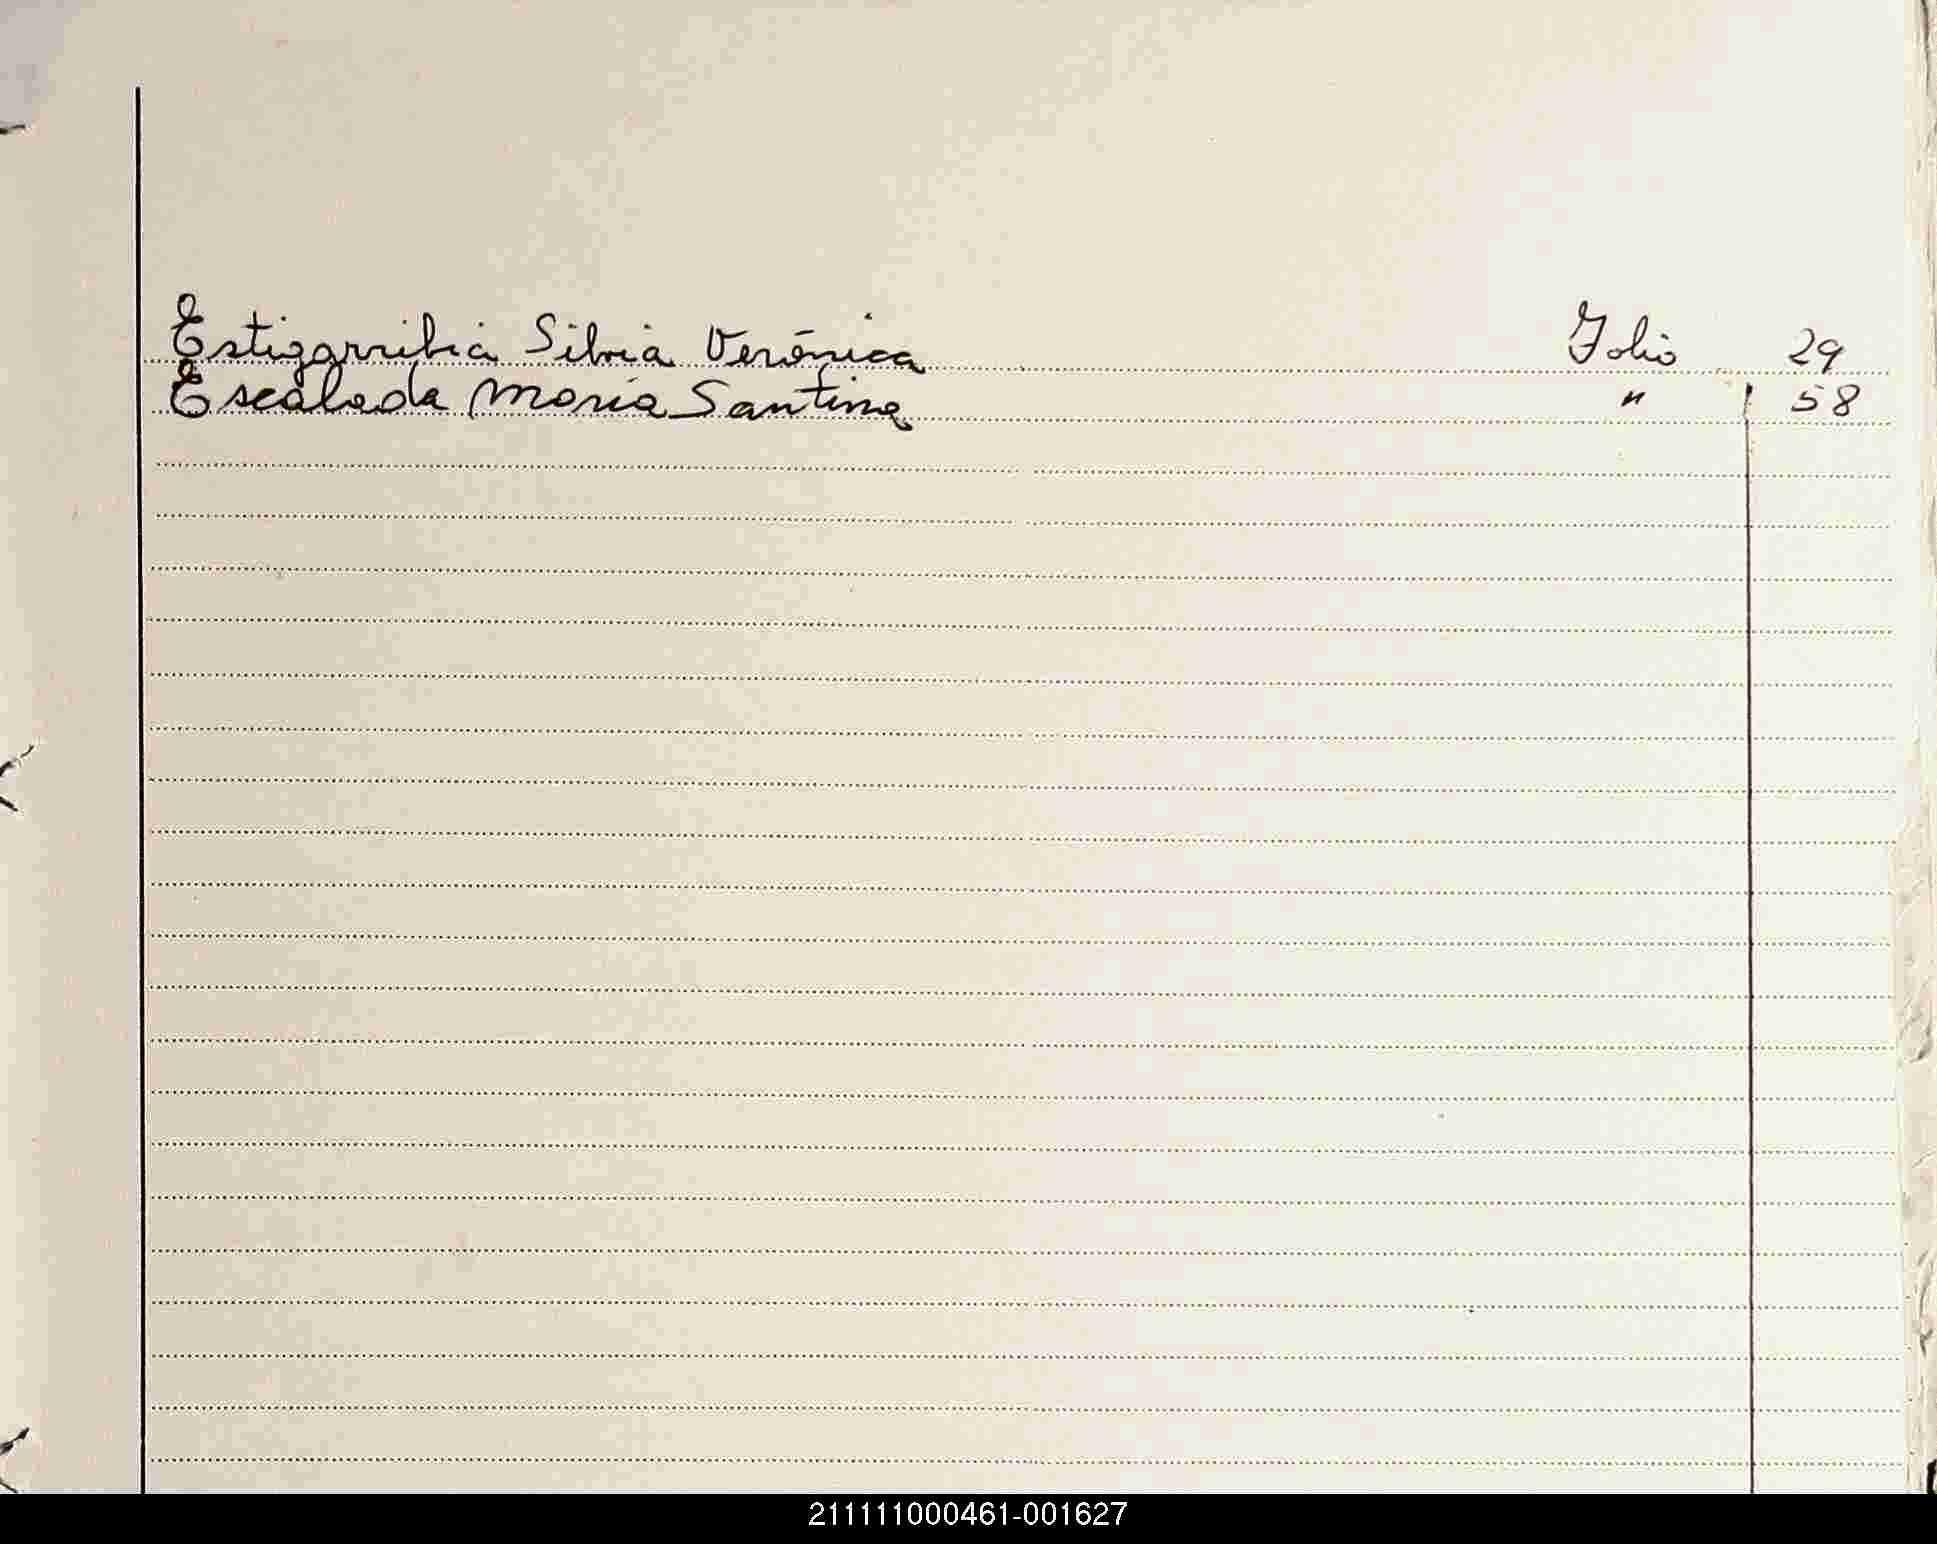 Estigarribia Silvia Verónica Folio 29
Escalada María Santina " 58
211111000461-001627